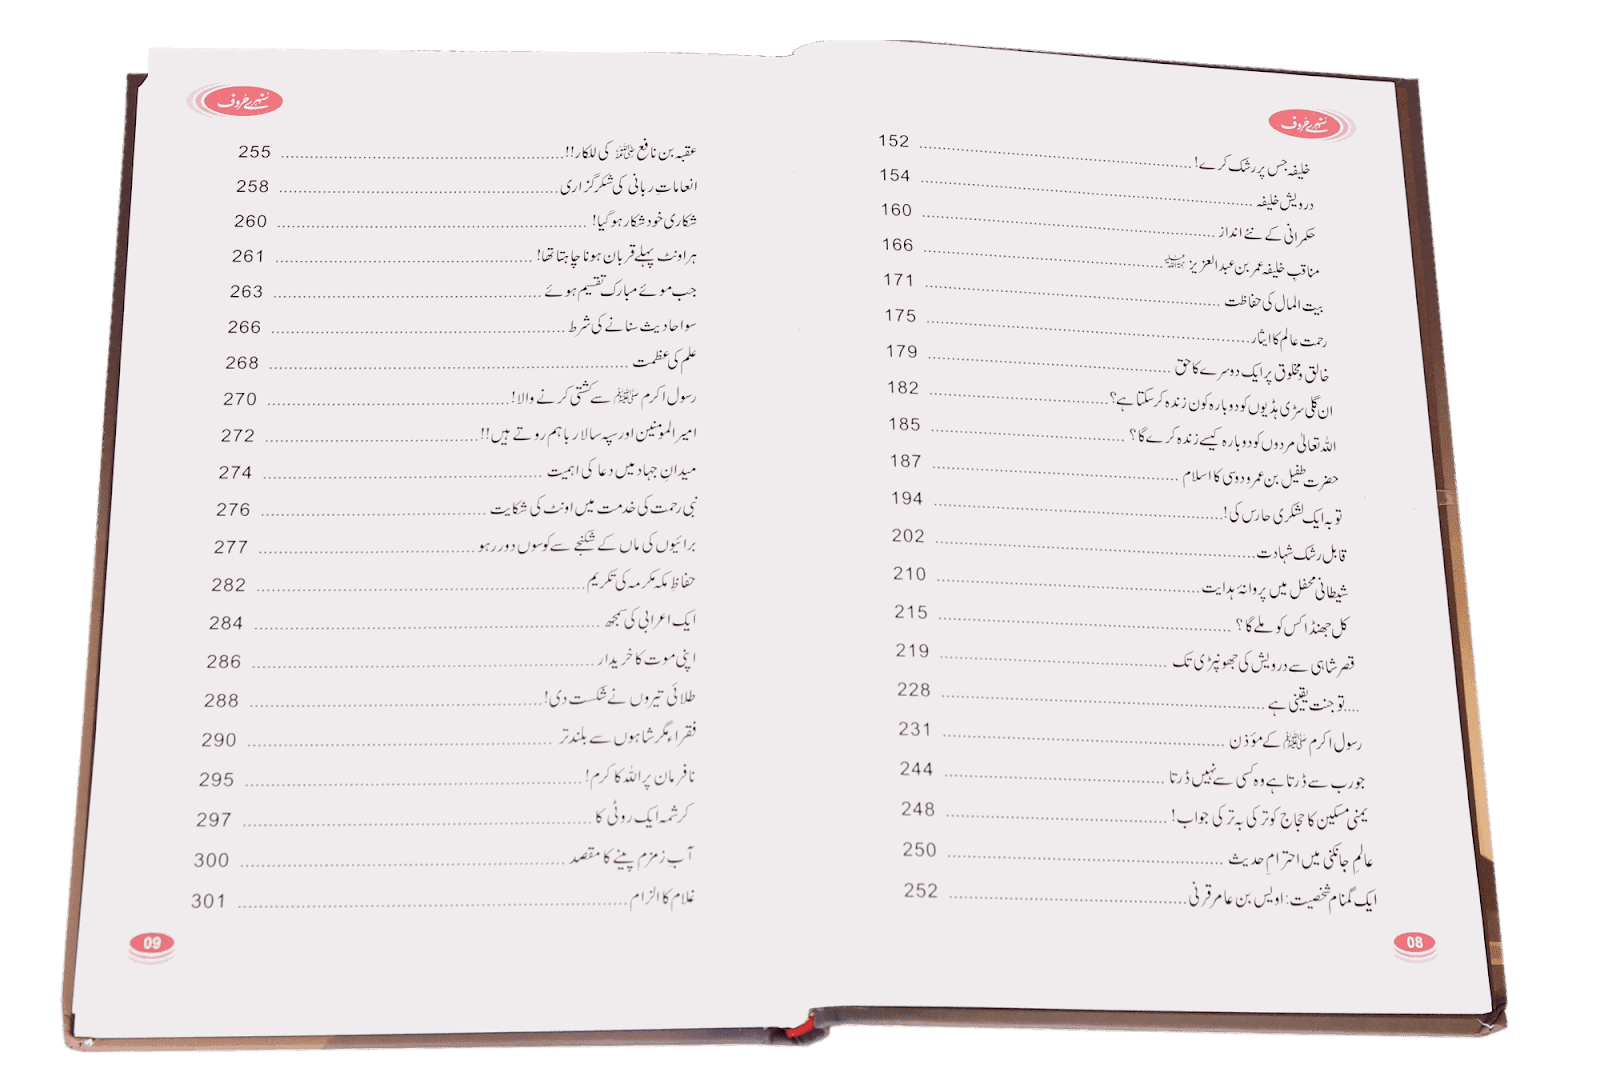 سنہرے حروف
خلیفہ جس پر رشک کرے! 152
درویش خلیفہ 154
حکمرانی کے نئے انداز 160
مناقبِ خلیفہ عمر بن عبدالعزیز رحمہ اللہ 166
بیت المال کی حفاظت 171
رحمت عالم کا ایثار 175
خالق و مخلوق پر ایک دوسرے کا حق 179
ان گلی سڑی ہڈیوں کو دوبارہ کون زندہ کر سکتا ہے؟ 182
اللہ تعالیٰ مردوں کو دوبارہ کیسے زندہ کرے گا؟ 185
حضرت طفیل بن عمرو دوسی کا اسلام 187
توبہ ایک لشکری حارس کی! 194
قابل رشک شہادت 202
شیطانی محفل میں پروانۂ ہدایت 210
کل جھنڈا کس کو ملے گا؟ 215
قصر شاہی سے درویش کی جھونپڑی تک 219
....تو جنت یقینی ہے 228
رسول اکرم ﷺ کے مؤذن 231
جو رب سے ڈرتا ہے وہ کسی سے نہیں ڈرتا 244
یمنی مسکین کا حجاج کو ترکی بہ ترکی جواب! 248
عالمِ جانکنی میں احترامِ حدیث 250
ایک گمنام شخصیت: اویس بن عامر قرنی 252
08
سنہرے حروف
عقبہ بن نافع رضی اللہ عنہ کی للکار!! 255
انعامات ربانی کی شکرگزاری 258
شکاری خود شکار ہوگیا! 260
ہر اونٹ پہلے قربان ہونا چاہتا تھا! 261
جب موئے مبارک تقسیم ہوئے 263
سو احادیث سنانے کی شرط 266
علم کی عظمت 268
رسول اکرم ﷺ سے کشتی کرنے والا! 270
امیر المؤمنین اور سپہ سالار باہم روتے ہیں!! 272
میدانِ جہاد میں دعا کی اہمیت 274
نبی رحمت کی خدمت میں اونٹ کی شکایت 276
برائیوں کی ماں کے شکنجے سے کوسوں دور رہو 277
حفاظِ مکہ مکرمہ کی تکریم 282
ایک اعرابی کی سمجھ 284
اپنی موت کا خریدار 286
طلائی تیروں نے شکست دی! 288
فقراء مگر شاہوں سے بلند تر 290
نافرمان پر اللہ کا کرم! 295
کرشمہ ایک روٹی کا 297
آب زمزم پینے کا مقصد 300
غلام کا الزام 301
09